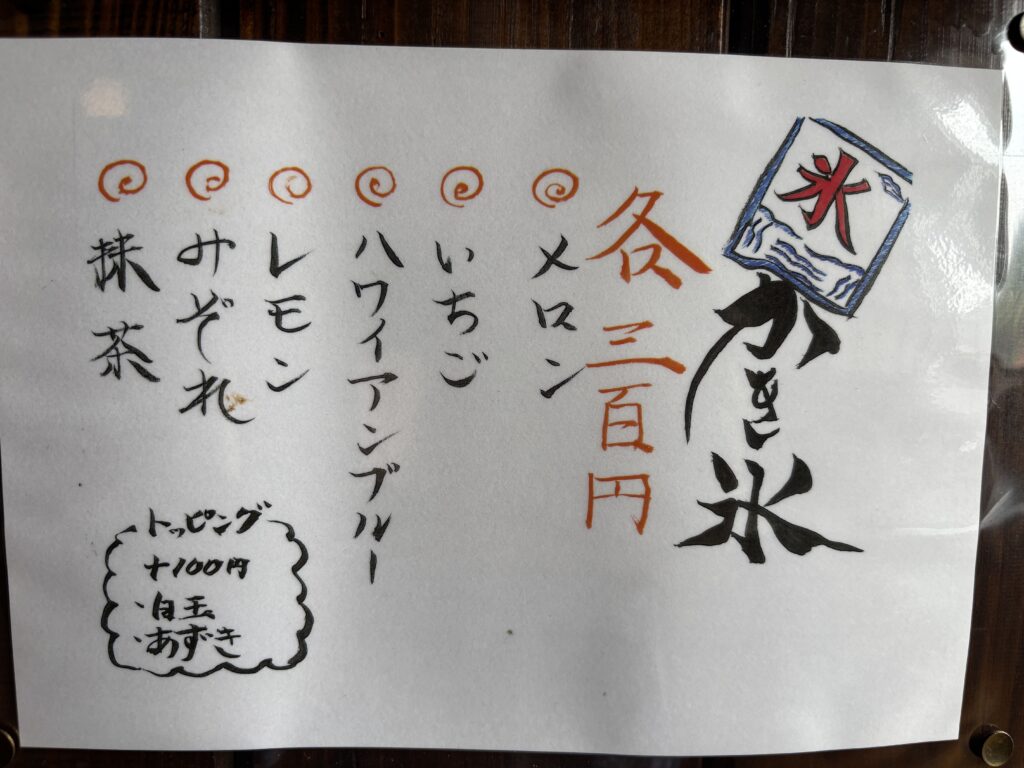 氷
かき氷
各三百円
メロン
いちご
ハワイアンブルー
レモン
みぞれ
抹茶
トッピング
+100円
・白玉
・あずき